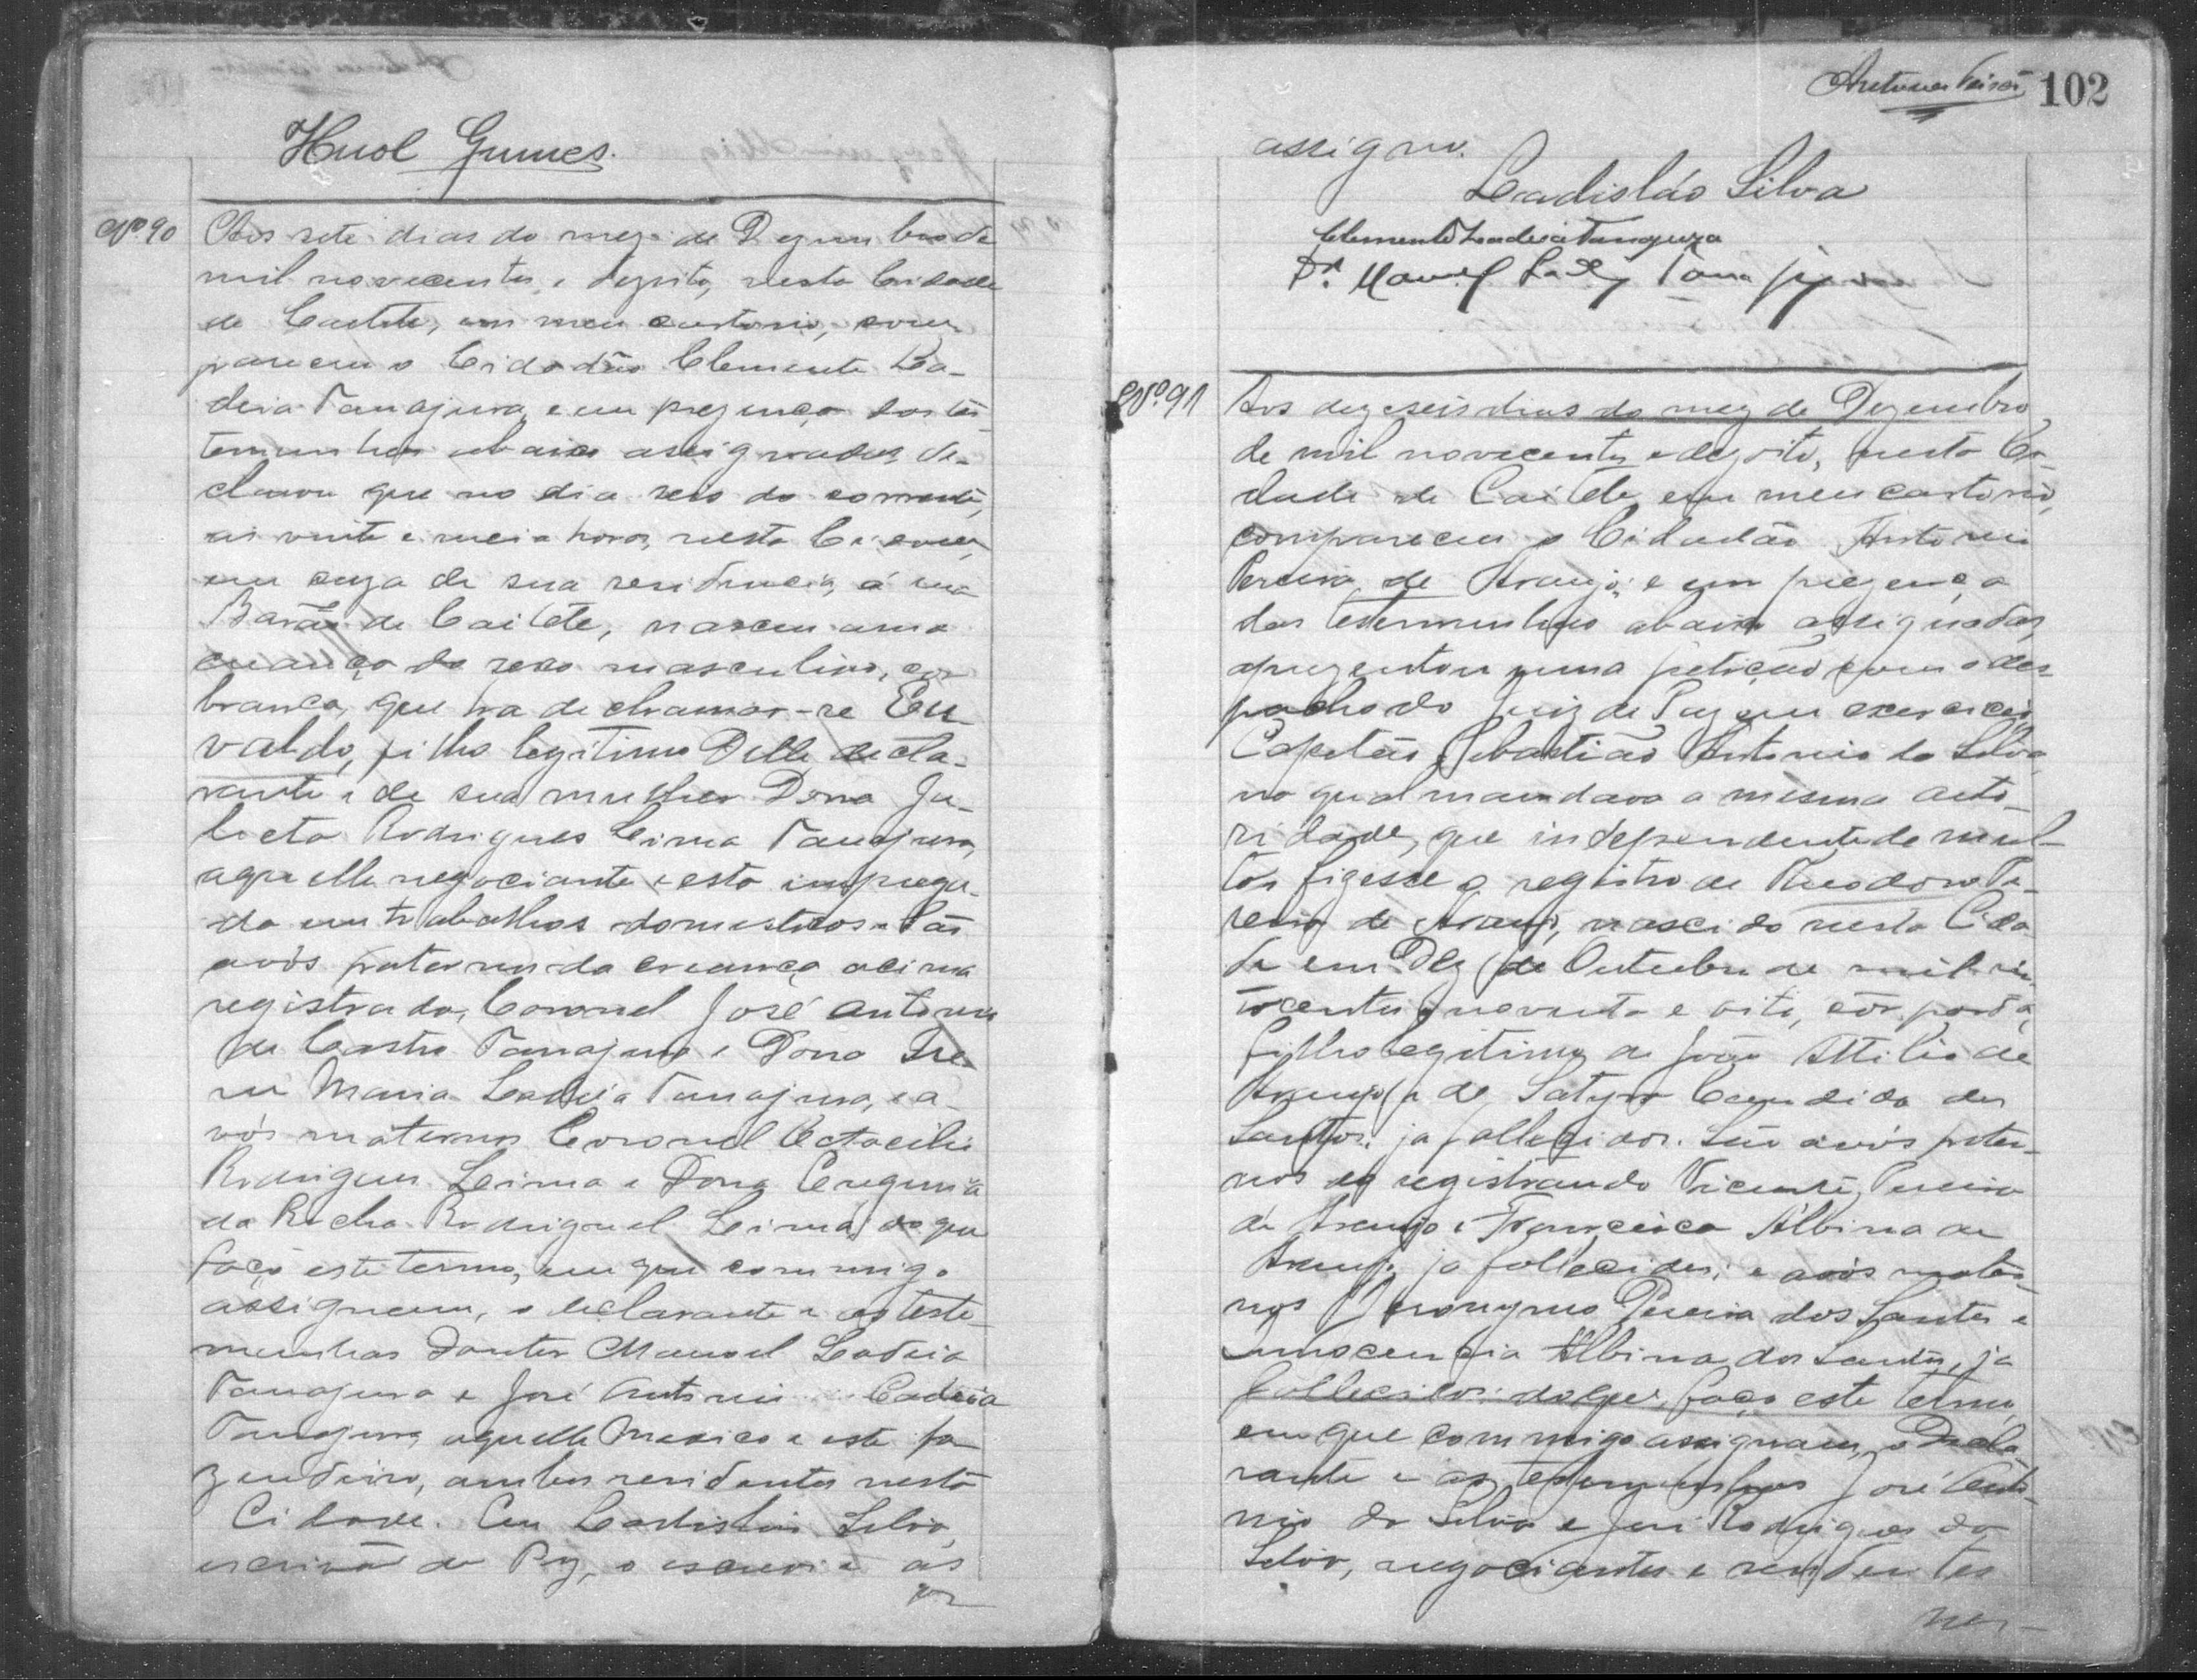 Huol Gumes.
Nº. 90 Aos sete dias do mez de Dezembro de
mil novecentos e dezoito, nesta Cidade
de Caeteté, em meu cartorio, com-
pareceu o Cidadão Clemente La-
deia Tanajura, e em prezença das tes-
temunhas abaixo assignadas, de-
clarou que no dia seis do corrente,
as vinte e meia horas, nesta
em caza de sua residencia, á rua
Barão de Caiteté, nasceu uma
creança do sexo masculino, cor
branca, que ha de chamar-se Eu-
valdo, filho legitimo delle decla-
rante e de sua mulher Dona Ju-
lieta Rodrigues Lima Tanajura,
aquelle negociante e esta emprega-
da em trabalhos domesticos. São
avós paternos da creança acima
registrada, Coronel José Antonio
de Castro Tanajura e Dona
Maria Ladeia Tanajura, e a-
vós maternos Coronel Octacilio
Rodrigues Lima e Dona
da Rocha Rodrigues Lima, do que
faço este termo, em que commigo
assignam, o declarante e as teste-
munhas Doutor Manoel Ladeia
Tanajura e José Antonio Ladeia
Tanajura, aquelle Medico e este fa-
zendeiro, ambos residentes nesta
Cidade. Eu Ladislau Silva,
escrivão de Paz, o escrevi e as
102
assigno.
Ladisláo Silva
Clemente Ladeia Tanajura
Dr. Manoel Tanajura
Nº. 91 Aos dezeseis dias do mez de Dezembro
de mil novecentos e dezoito, nesta Ci-
dade de Caiteté, em meu cartorio,
compareceu o Cidadão Antonio
Pereira de Araujo; e em prezença
das testemunhas abaixo assignadas,
aprezentou uma petição com o des-
pacho do Juiz de Paz em exercicio
Capitão Sebastião Antonio da Silva
no qual mandava a mesma auto-
ridade, que independente de mul-
tas fizesse o registro de Theodoro Pe-
reira de Araujo, nascido nesta Cida-
de em Dez de Outubro de mil oi-
tocentos e noventa e oito, côr parda,
filho legitimo de João Attilio de
Araujo e de Satyra Candida dos
Santos, ja fallecidos. São avós pater-
nos do registrando Vicente Pereira
de Araujo e Francisca Albina de
Araujo, ja fallecidos; e avós mater-
nos Jeronymo Pereira dos Santos e
Innocencia Albina dos Santos, ja
fallecidos: do que faço este termo,
em que commigo assignam, o Decla-
rante e as testemunhas José Anto-
nio da Silva e José Rodrigues da
Silva, negociantes e residentes
nes-